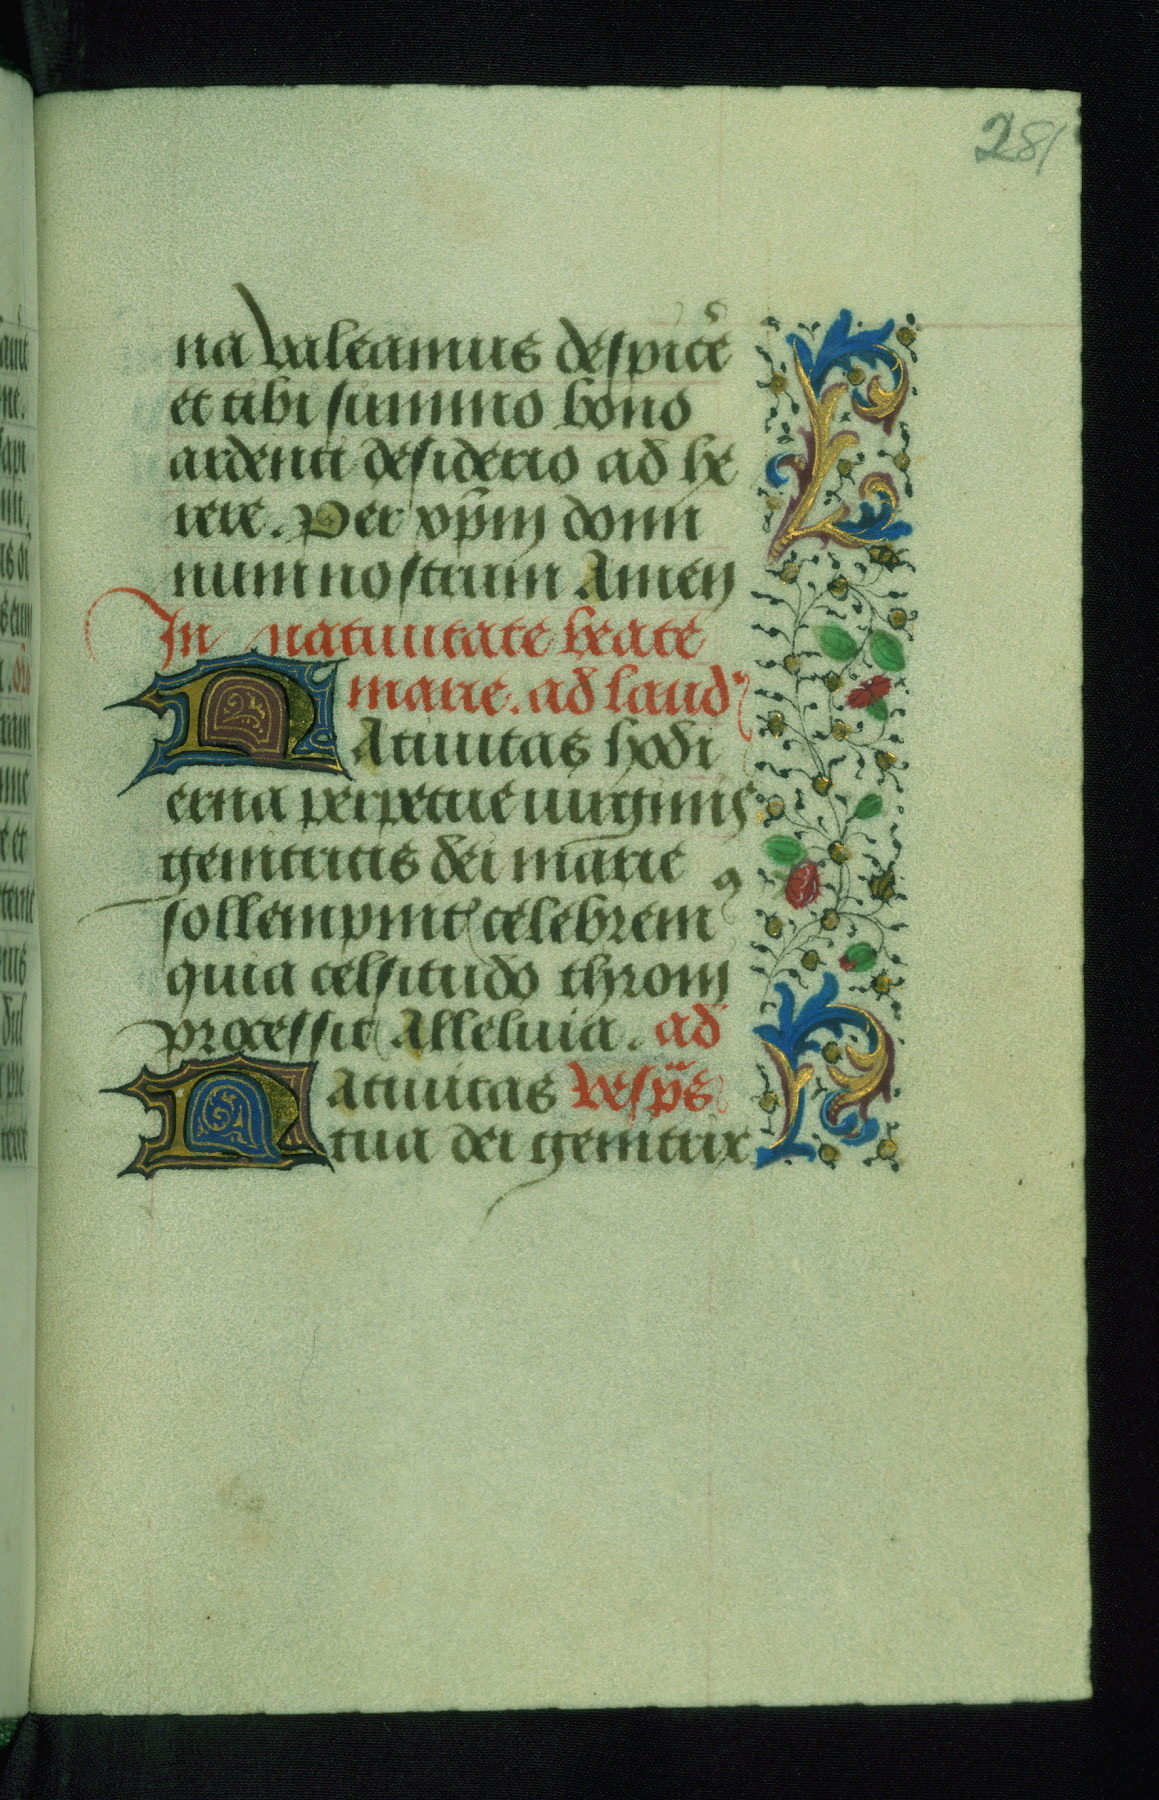 281
na valeamus despice᷒
et tibi summo bono
ardenti desiderio ad he
rere. Per xp̄m domi
num nostrum Amen
In natiuitate beate
marie. ad laud᷒
Natiuitas hodi
erna perpetue uirginis
genitricis dei marie
sollempnit᷒ celebrem᷒
quia celsitudo throni
processit Alleluia. ad
Natiuitas vesp̄s
tua dei genitrix